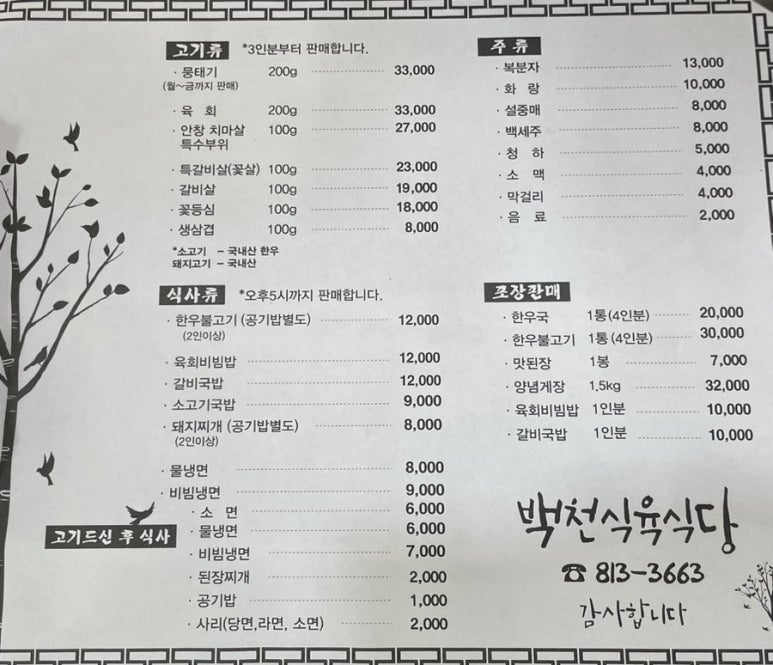 고기류 *3인분부터 판매합니다.
· 뭉태기 200g 33,000
(월~금까지 판매)
· 육 회 200g 33,000
· 안창 치마살 100g 27,000
특수부위
· 특갈비살(꽃살) 100g 23,000
· 갈비살 100g 19,000
· 꽃등심 100g 18,000
· 생삼겹 100g 8,000
*소고기 – 국내산 한우
돼지고기 – 국내산
식사류 *오후5시까지 판매합니다.
· 한우불고기 (공기밥별도) 12,000
(2인이상)
· 육회비빔밥 12,000
· 갈비국밥 12,000
· 소고기국밥 9,000
· 돼지찌개 (공기밥별도) 8,000
(2인이상)
· 물냉면 8,000
· 비빔냉면 9,000
고기드신 후 식사
· 소 면 6,000
· 물냉면 6,000
· 비빔냉면 7,000
· 된장찌개 2,000
· 공기밥 1,000
· 사리(당면,라면, 소면) 2,000
주 류
· 복분자 13,000
· 화 랑 10,000
· 설중매 8,000
· 백세주 8,000
· 청 하 5,000
· 소 맥 4,000
· 막걸리 4,000
· 음 료 2,000
포장판매
· 한우국 1통(4인분) 20,000
· 한우불고기 1통(4인분) 30,000
· 맛된장 1봉 7,000
· 양념게장 1.5kg 32,000
· 육회비빔밥 1인분 10,000
· 갈비국밥 1인분 10,000
백천식육식당
☎ 813-3663
감사합니다